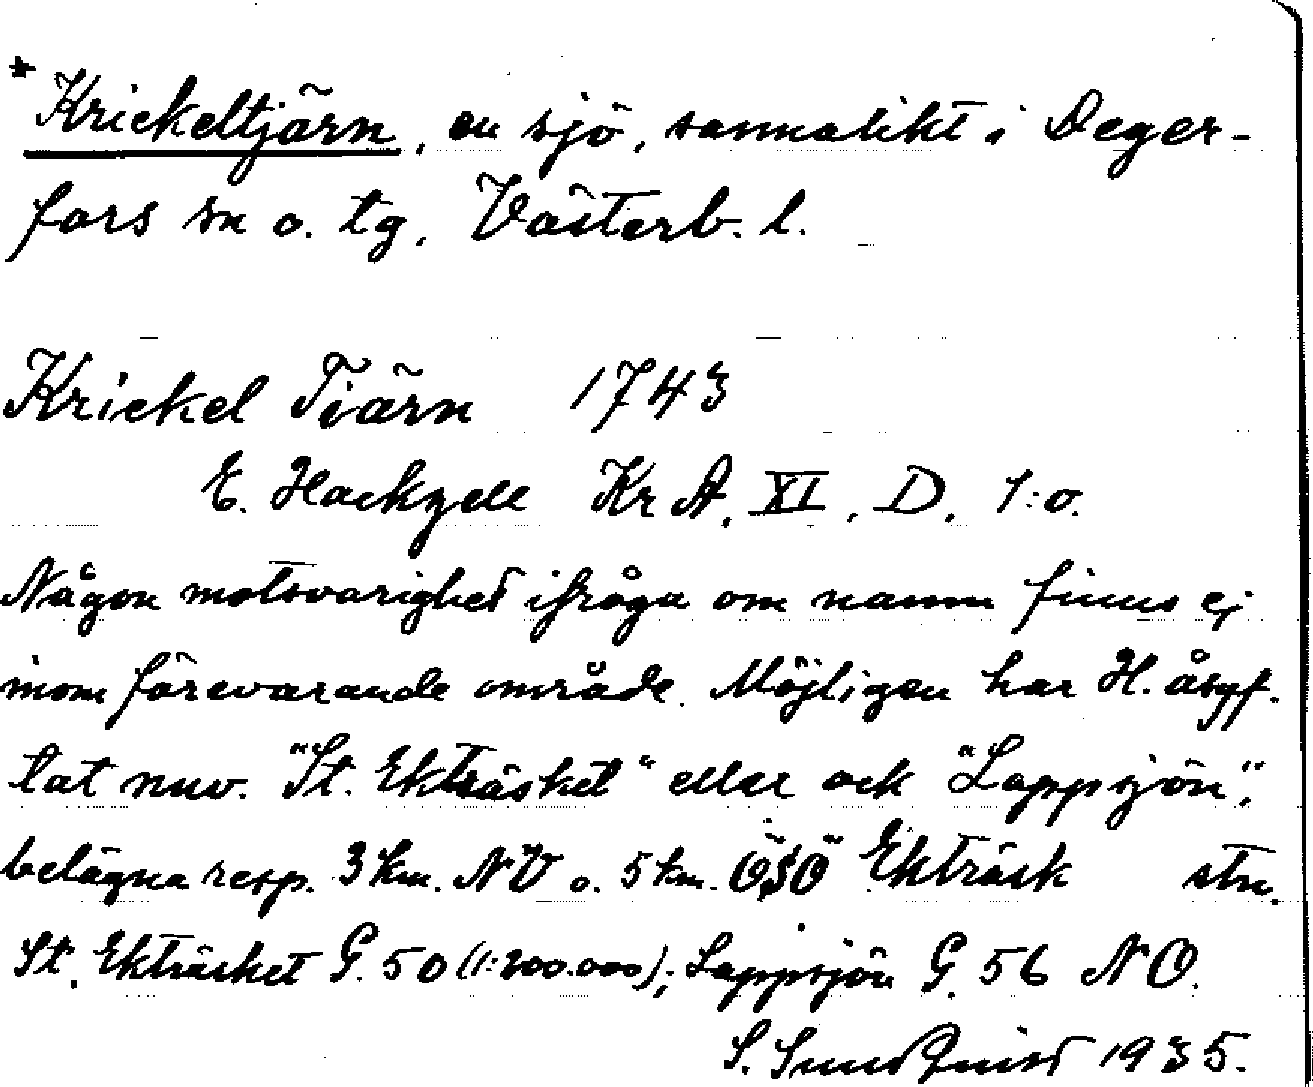 * Krickeltjärn, en sjö, sannolikt i Deger-
fors sn o. tg, Västerb. l.
Krickel Tiärn 1743
E. Hackzell Kr A. XI. D. 1:o.
Någon motsvarighet ifråga om namn finns ej
inom förevarande område. Möjligen har H. åsyf-
tat nuv. "St. Ekträsket" eller ock "Lappsjön",
belägna resp. 3 km. NV o. 5 km. ÖSÖ Ekträsk stn.
St. Ekträsket G. 50 (1:200.000); Lappsjön G. 56 NO.
S. Sundquist 1935.